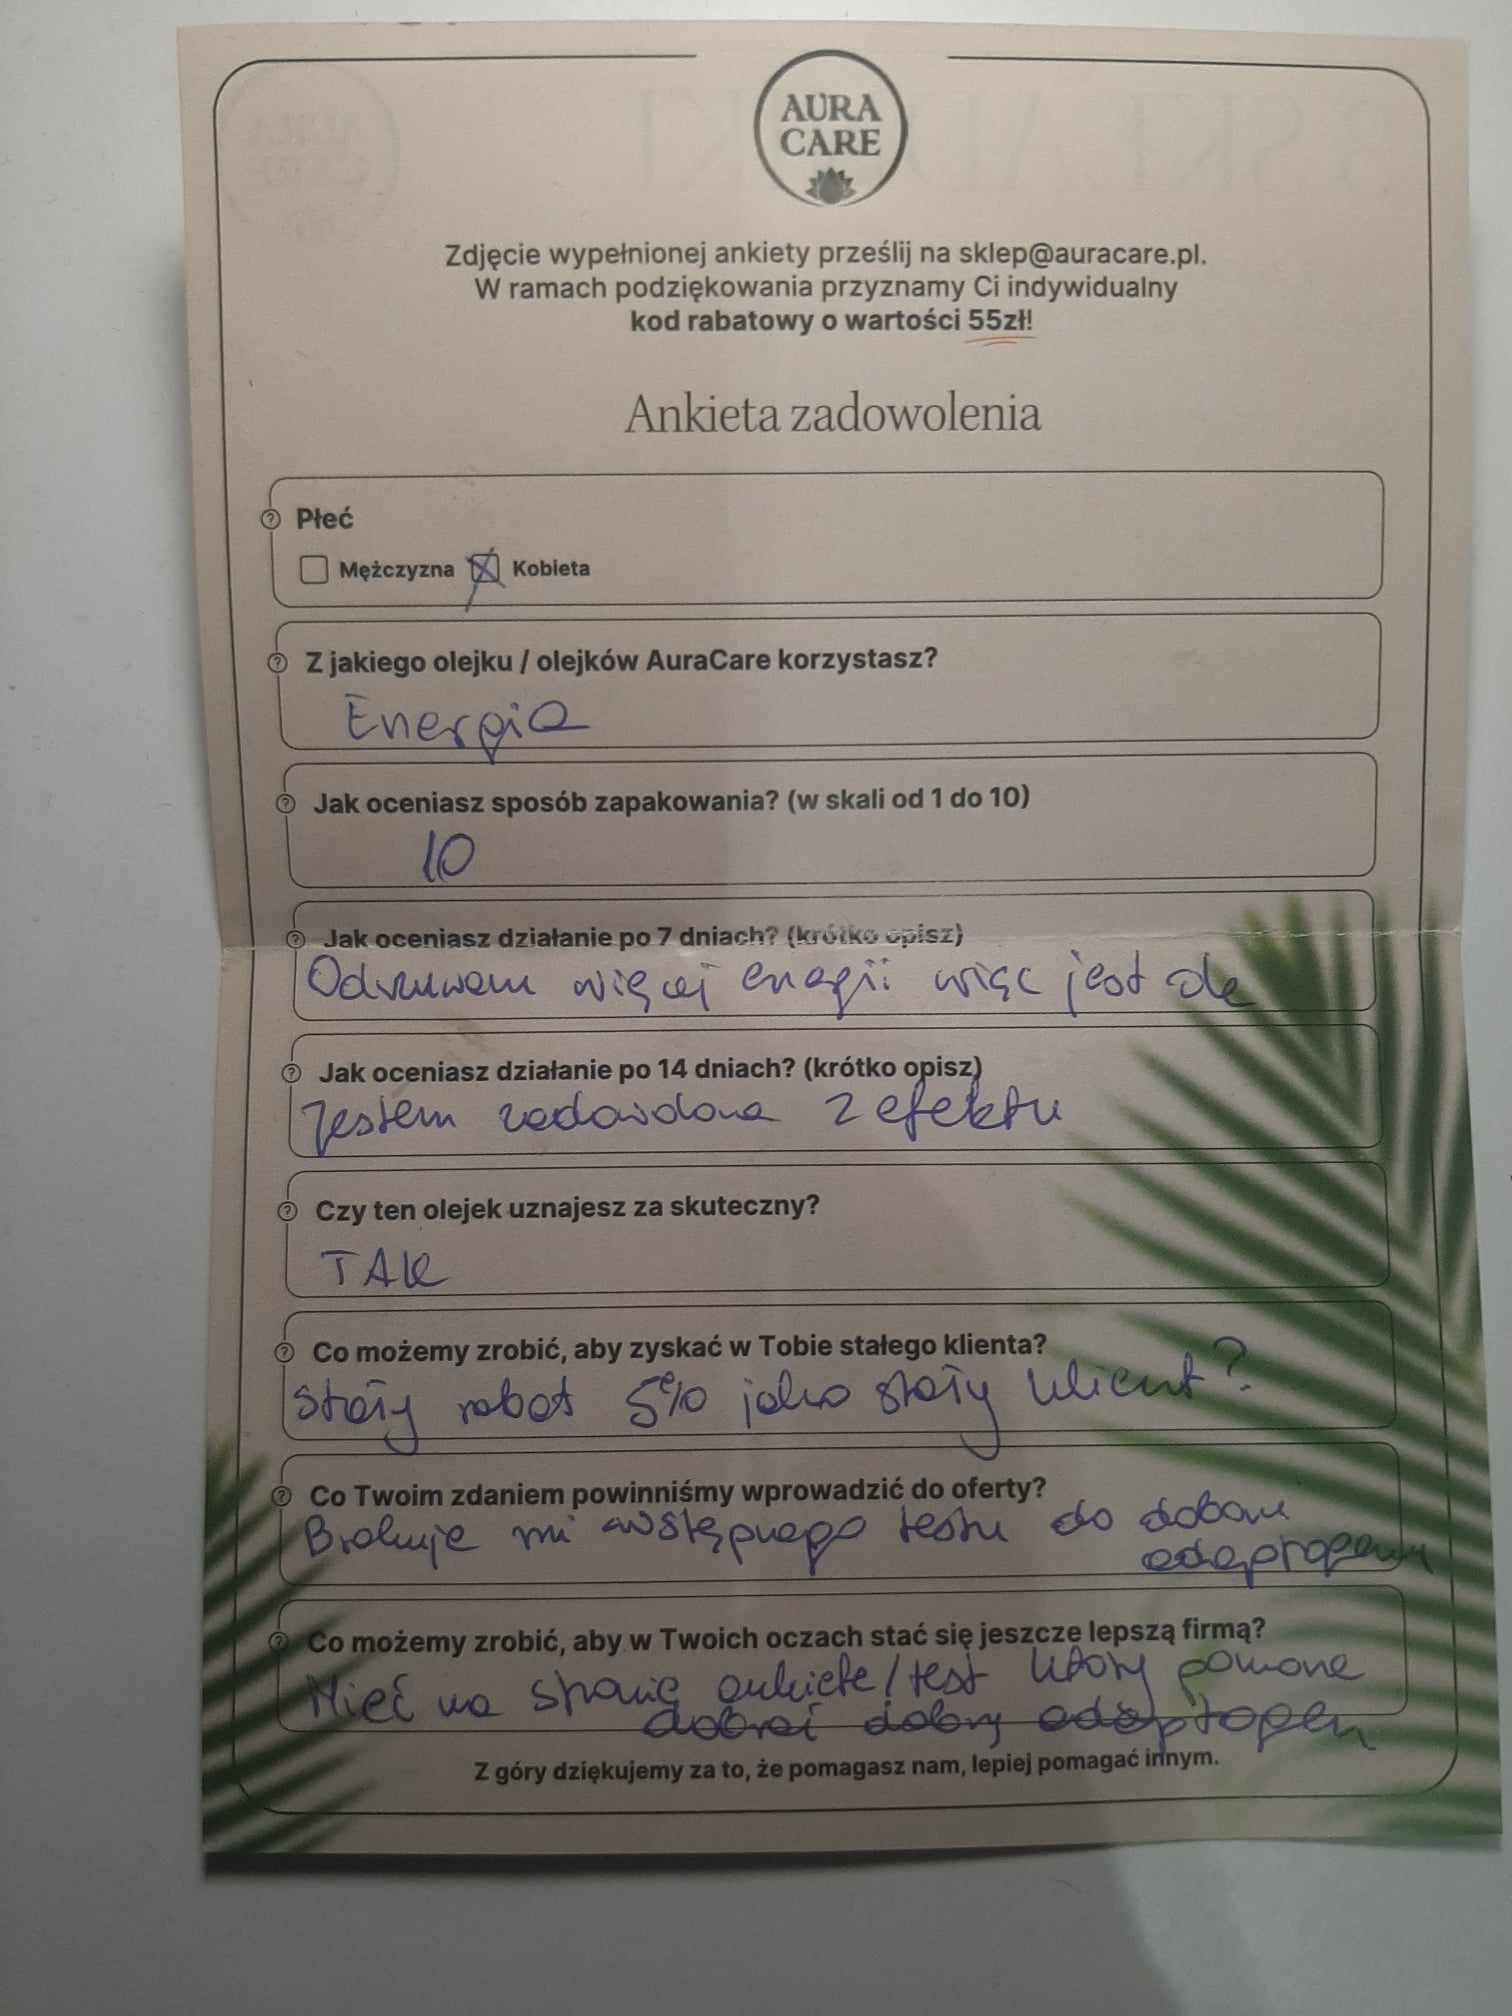 AURA
CARE
Zdjęcie wypełnionej ankiety prześlij na sklep@auracare.pl.
W ramach podziękowania przyznamy Ci indywidualny
kod rabatowy o wartości 55zł!
Ankieta zadowolenia
Płeć
Mężczyzna Kobieta
Z jakiego olejku / olejków AuraCare korzystasz?
Energia
Jak oceniasz sposób zapakowania? (w skali od 1 do 10)
10
Jak oceniasz działanie po 7 dniach? (krótko opisz)
Odczuwam więcej energii więc jest ok
Jak oceniasz działanie po 14 dniach? (krótko opisz)
Jestem zadowolona z efektu
Czy ten olejek uznajesz za skuteczny?
TAK
Co możemy zrobić, aby zyskać w Tobie stałego klienta?
Stały rabat 5% jako stały klient?
Co Twoim zdaniem powinniśmy wprowadzić do oferty?
Brakuje mi wstępnego testu do doboru
adaptogenu
Co możemy zrobić, aby w Twoich oczach stać się jeszcze lepszą firmą?
Mieć na stronie ankietę/test który pomoże
dobrać dobry adaptogen
Z góry dziękujemy za to, że pomagasz nam, lepiej pomagać innym.